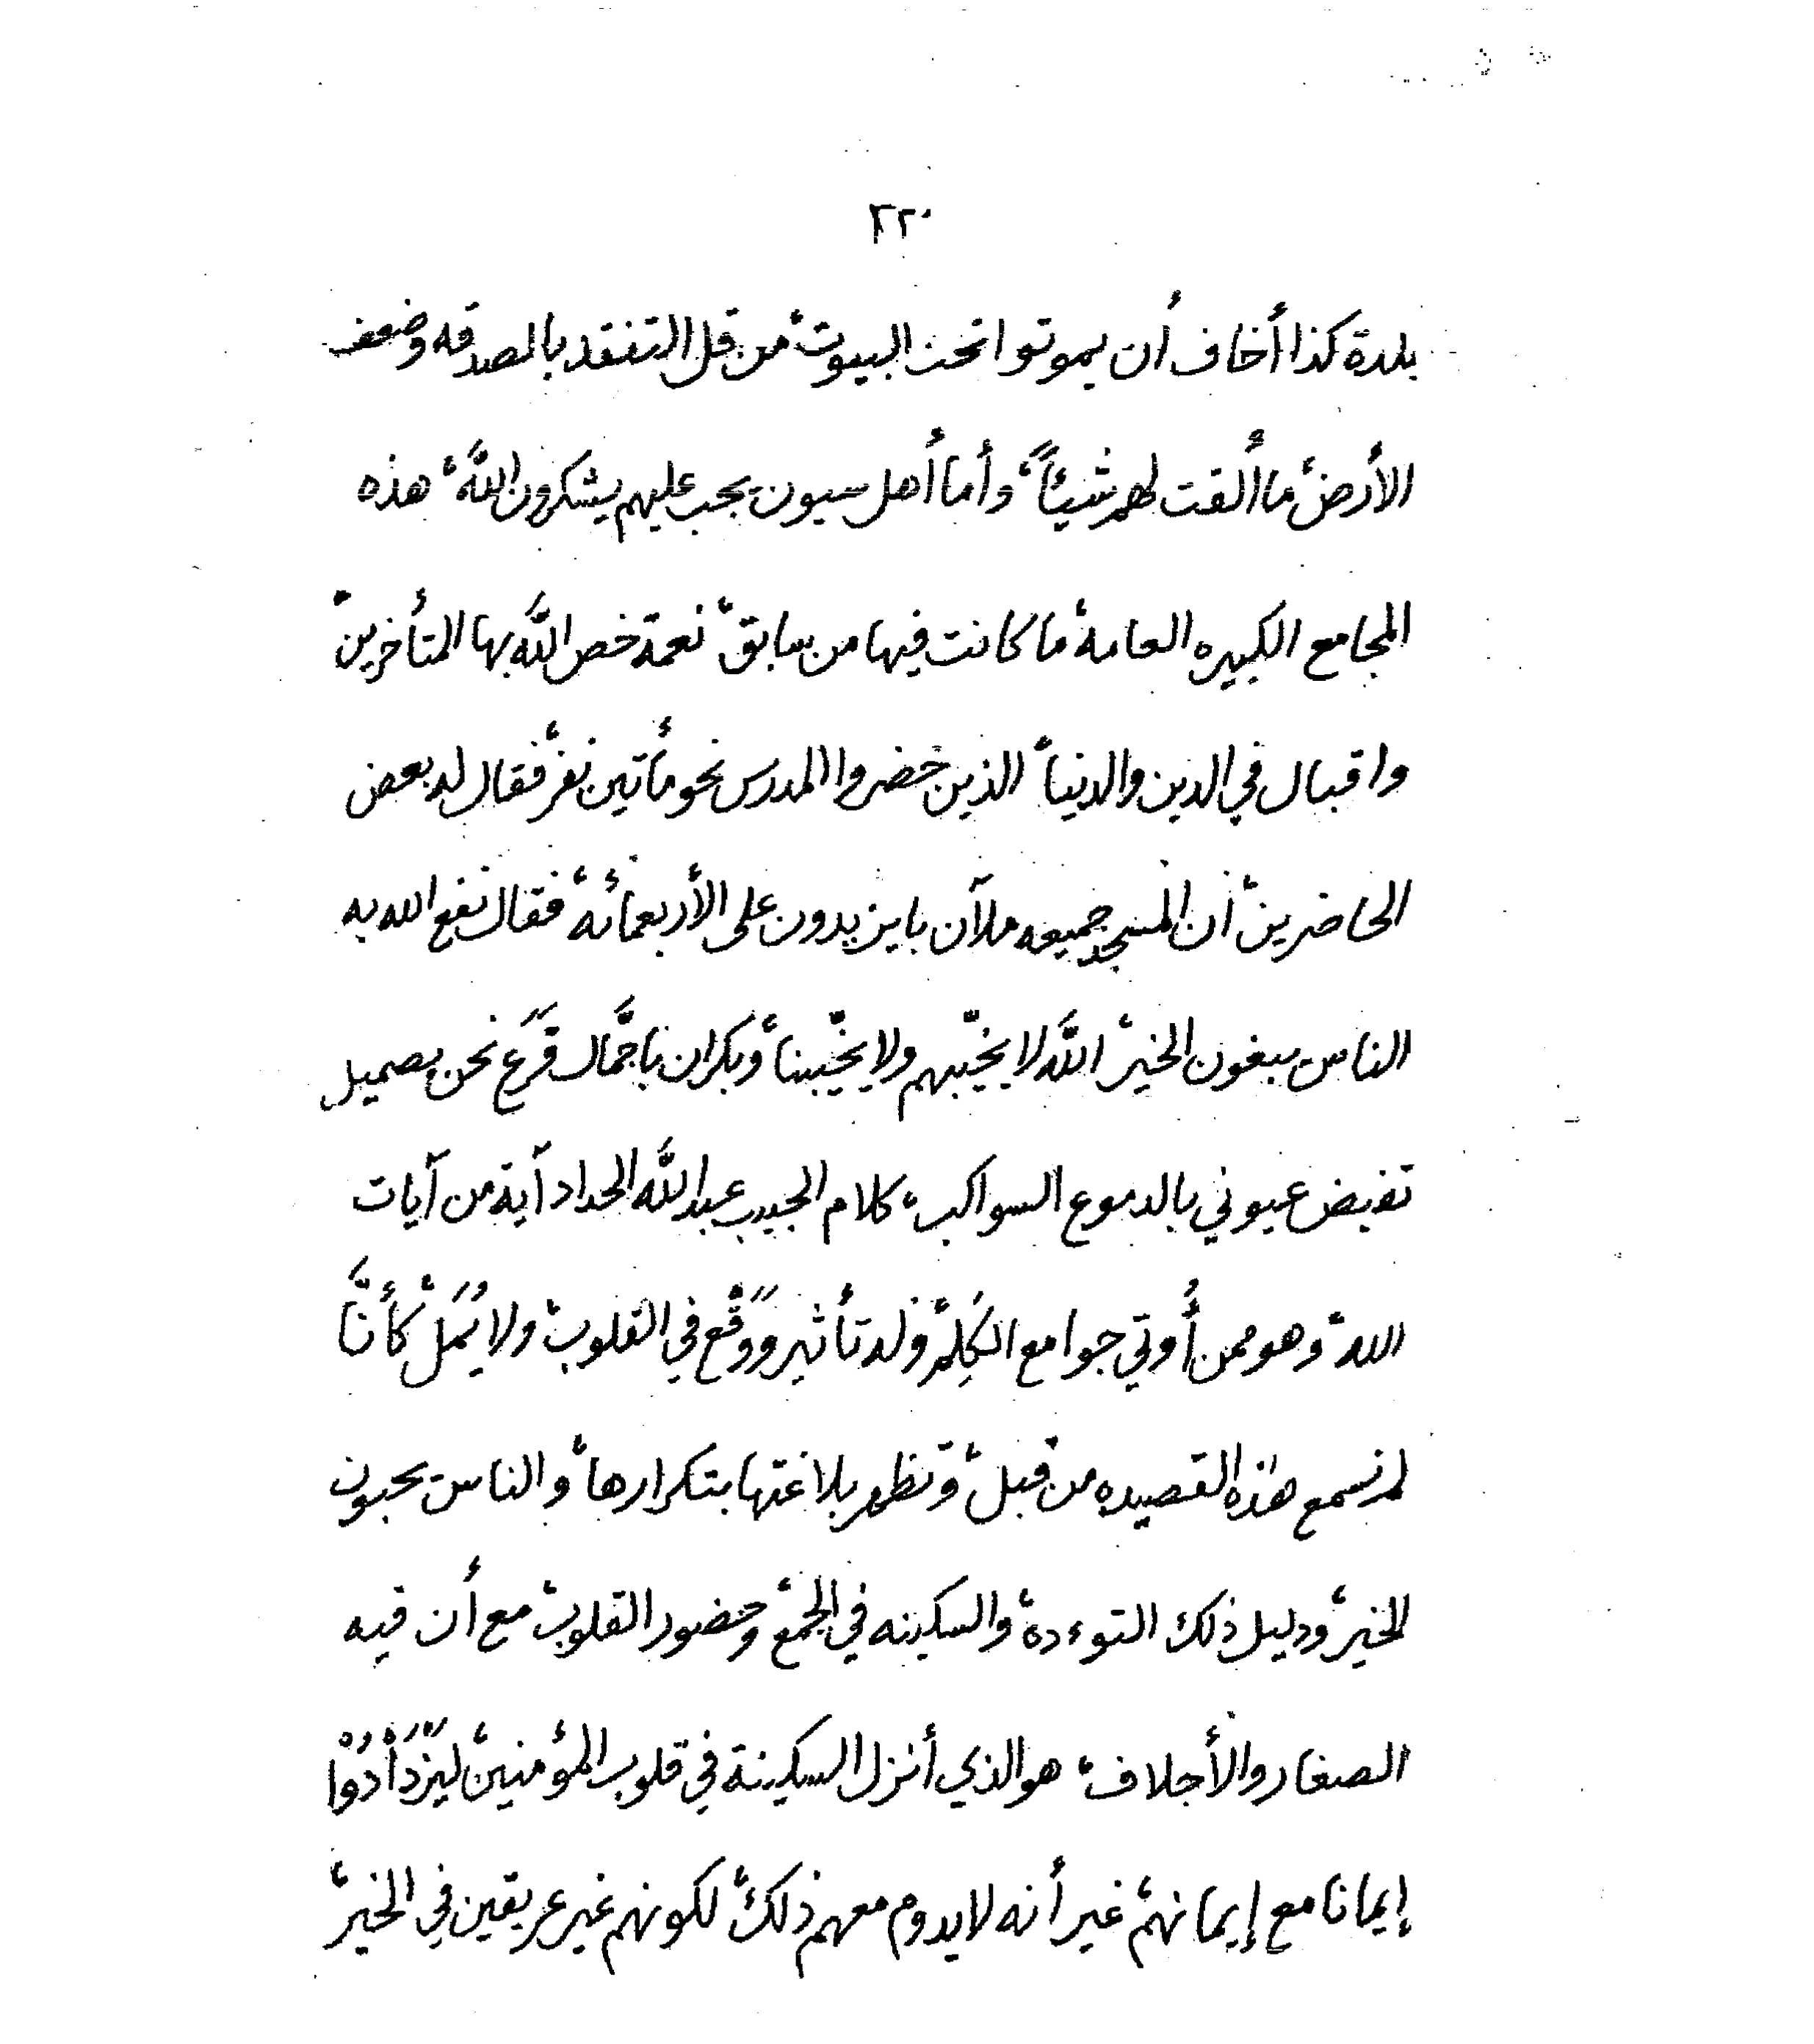 ٢٢٠
بلدة كذا أخاف أن يموتوا تحت البيوت، من قل التفقد بالصدقه وضعف
الأرض، ما ألقت لهم شيئاً، وأما أهل سيون يجب عليهم يشكرون اللَّه، هذه
المجامع الكبيره العامة، ما كانت فيها من سابق، نعمة خص اللَّه بها المتأخرين،
واقبال في الدين والدنيا، الذين حضروا المدرس نحو مأتين نفر، فقال له بعض
الحاضرين، أن المسجد جميعه ملآن بايزيدون على الأربعمائة، فقال نفع الله به
الناس يبغون الخير، اللَّه لا يخيّبهم ولا يخيّبنا، وبكران باجمَّال قَرَع نحن بصميل
تفيض عيوني بالدموع السواكب، كلام الحبيب عبداللَّه الحداد آية من آيات
الله، وهو ممن أُوتي جوامع الكَلِم، وله تأثير ووَقْع في القلوب، ولا يُمَل، كأنَّا
لم نسمع هذه القصيده من قبل، وتظهر بلاغتها بتكرارها، والناس يحبون
الخير، ودليل ذلك التوءدة، والسكينه في الجمع، وحضور القلوب، مع أن فيه
الصغار والأجلاف، هو الذي أنزل السكينة في قلوب المؤمنين، لِيَزْدَادُوْا
إيمانا مع إيمانهم، غير أنه لا يدوم معهم ذلك، لكونهم غير عريقين في الخير،